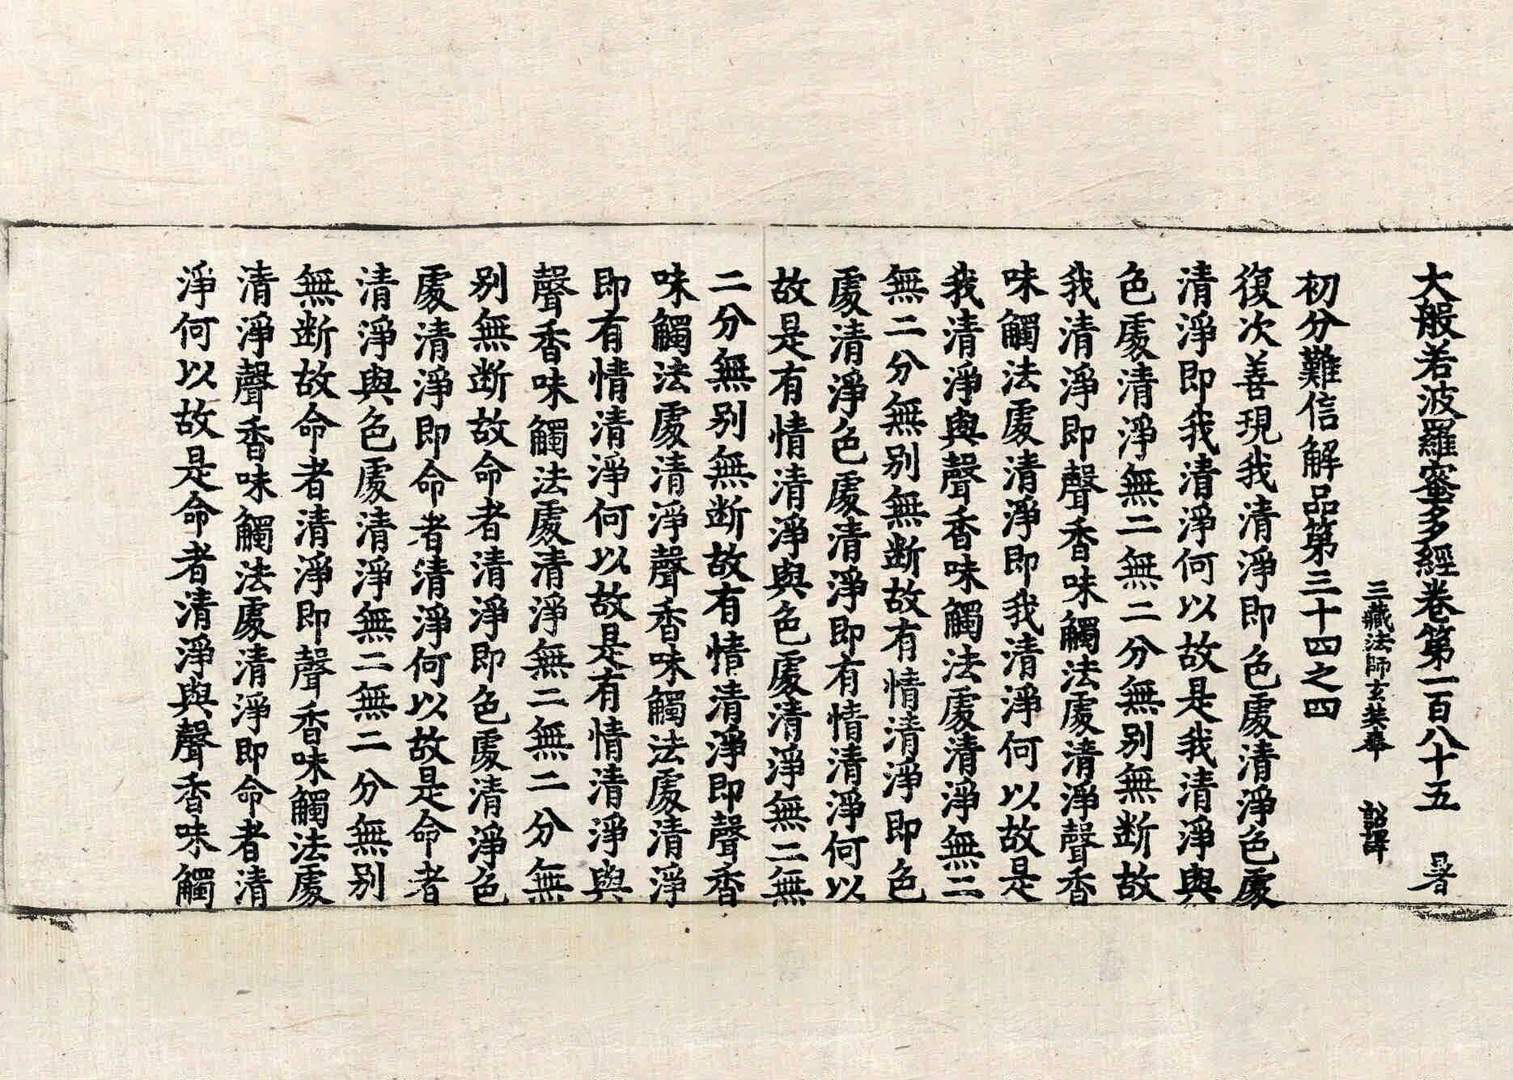 大般若波羅蜜多經卷第一百八十五　暑
三藏法師玄奘奉　詔譯
初分難信解品第三十四之四
復次善現我清淨即色處清淨色處
清淨即我清淨何以故是我清淨與
色處清淨無二無二分無別無斷故
我清淨即聲香味觸法處清淨聲香
味觸法處清淨即我清淨何以故是
我清淨與聲香味觸法處清淨無二
無二分無別無斷故有情清淨即色
處清淨色處清淨即有情清淨何以
故是有情清淨與色處清淨無二無
二分無別無斷故有情清淨即聲香
味觸法處清淨聲香味觸法處清淨
即有情清淨何以故是有情清淨與
聲香味觸法處清淨無二無二分無
別無斷故命者清淨即色處清淨色
處清淨即命者清淨何以故是命者
清淨與色處清淨無二無二分無別
無斷故命者清淨即聲香味觸法處
清淨聲香味觸法處清淨即命者清
淨何以故是命者清淨與聲香味觸